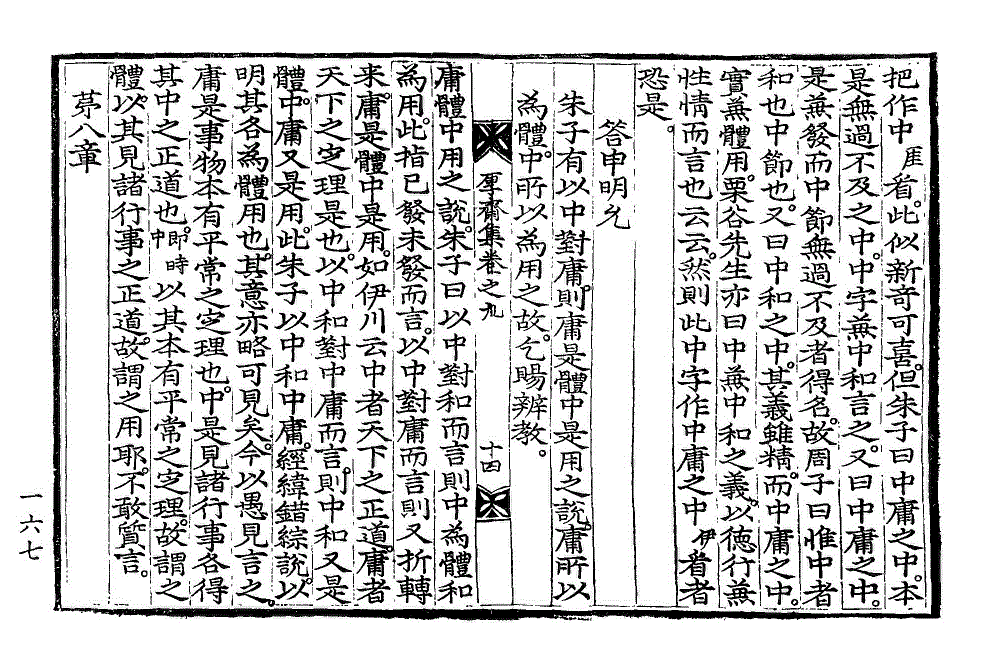 把作中厓看。此似新奇可喜。但朱子曰中庸之中。本
是無過不及之中。中字兼中和言之。又曰中庸之中。
是兼發而中節無過不及者得名。故周子曰惟中者
和也中節也。又曰中和之中。其義雖精。而中庸之中。
實兼體用。栗谷先生亦曰中兼中和之義。以德行兼
性情而言也云云。然則此中字作中庸之中伊看者
恐是。
答申明允
朱子有以中對庸則庸是體中是用之說。庸所以
為體中。所以為用之故。乞賜辨教。
厚齋集卷之九
十四
庸體中用之說。朱子曰以中對和而言則中為體和
為用。此指已發未發而言。以中對庸而言則又折轉
來。庸是體中是用。如伊川云中者天下之正道。庸者
天下之定理是也。以中和對中庸而言。則中和又是
體中。庸又是用。此朱子以中和中庸。經緯錯綜說。以
明其各為體用也。其意亦略可見矣。今以愚見言之。
庸是事物本有平常之定理也。中是見諸行事各得
其中之正道也。即時中以其本有平常之定理。故謂之
體。以其見諸行事之正道。故謂之用耶。不敢質言。
茅八章
一六七